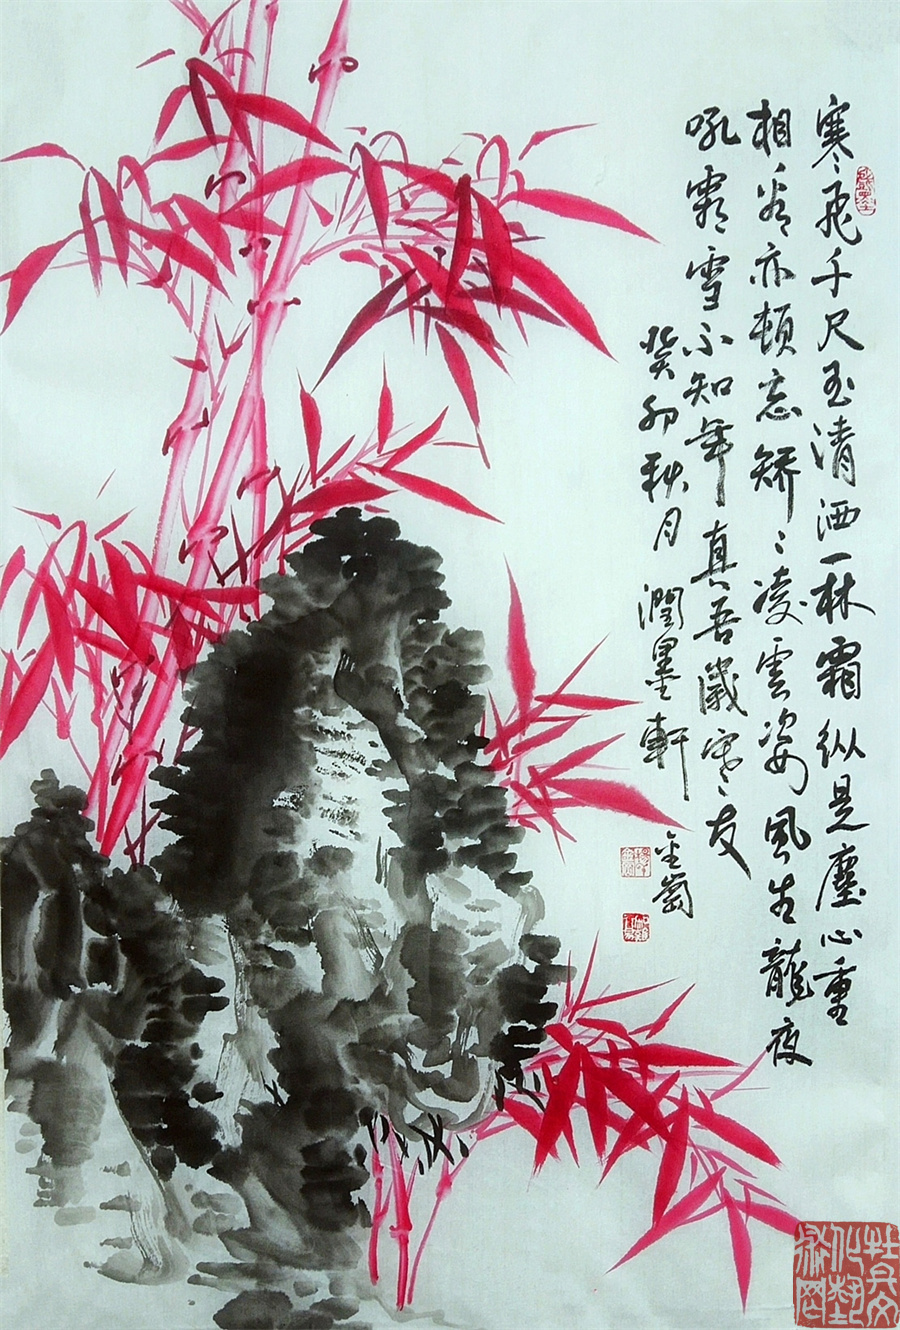 寒飛千尺玉清洒一林霜纵是塵心重
相看亦頓忘矫〻凌雲姿風生龍夜
吼霜雪不知年真吾歲寒友
癸卯秋月潤墨軒